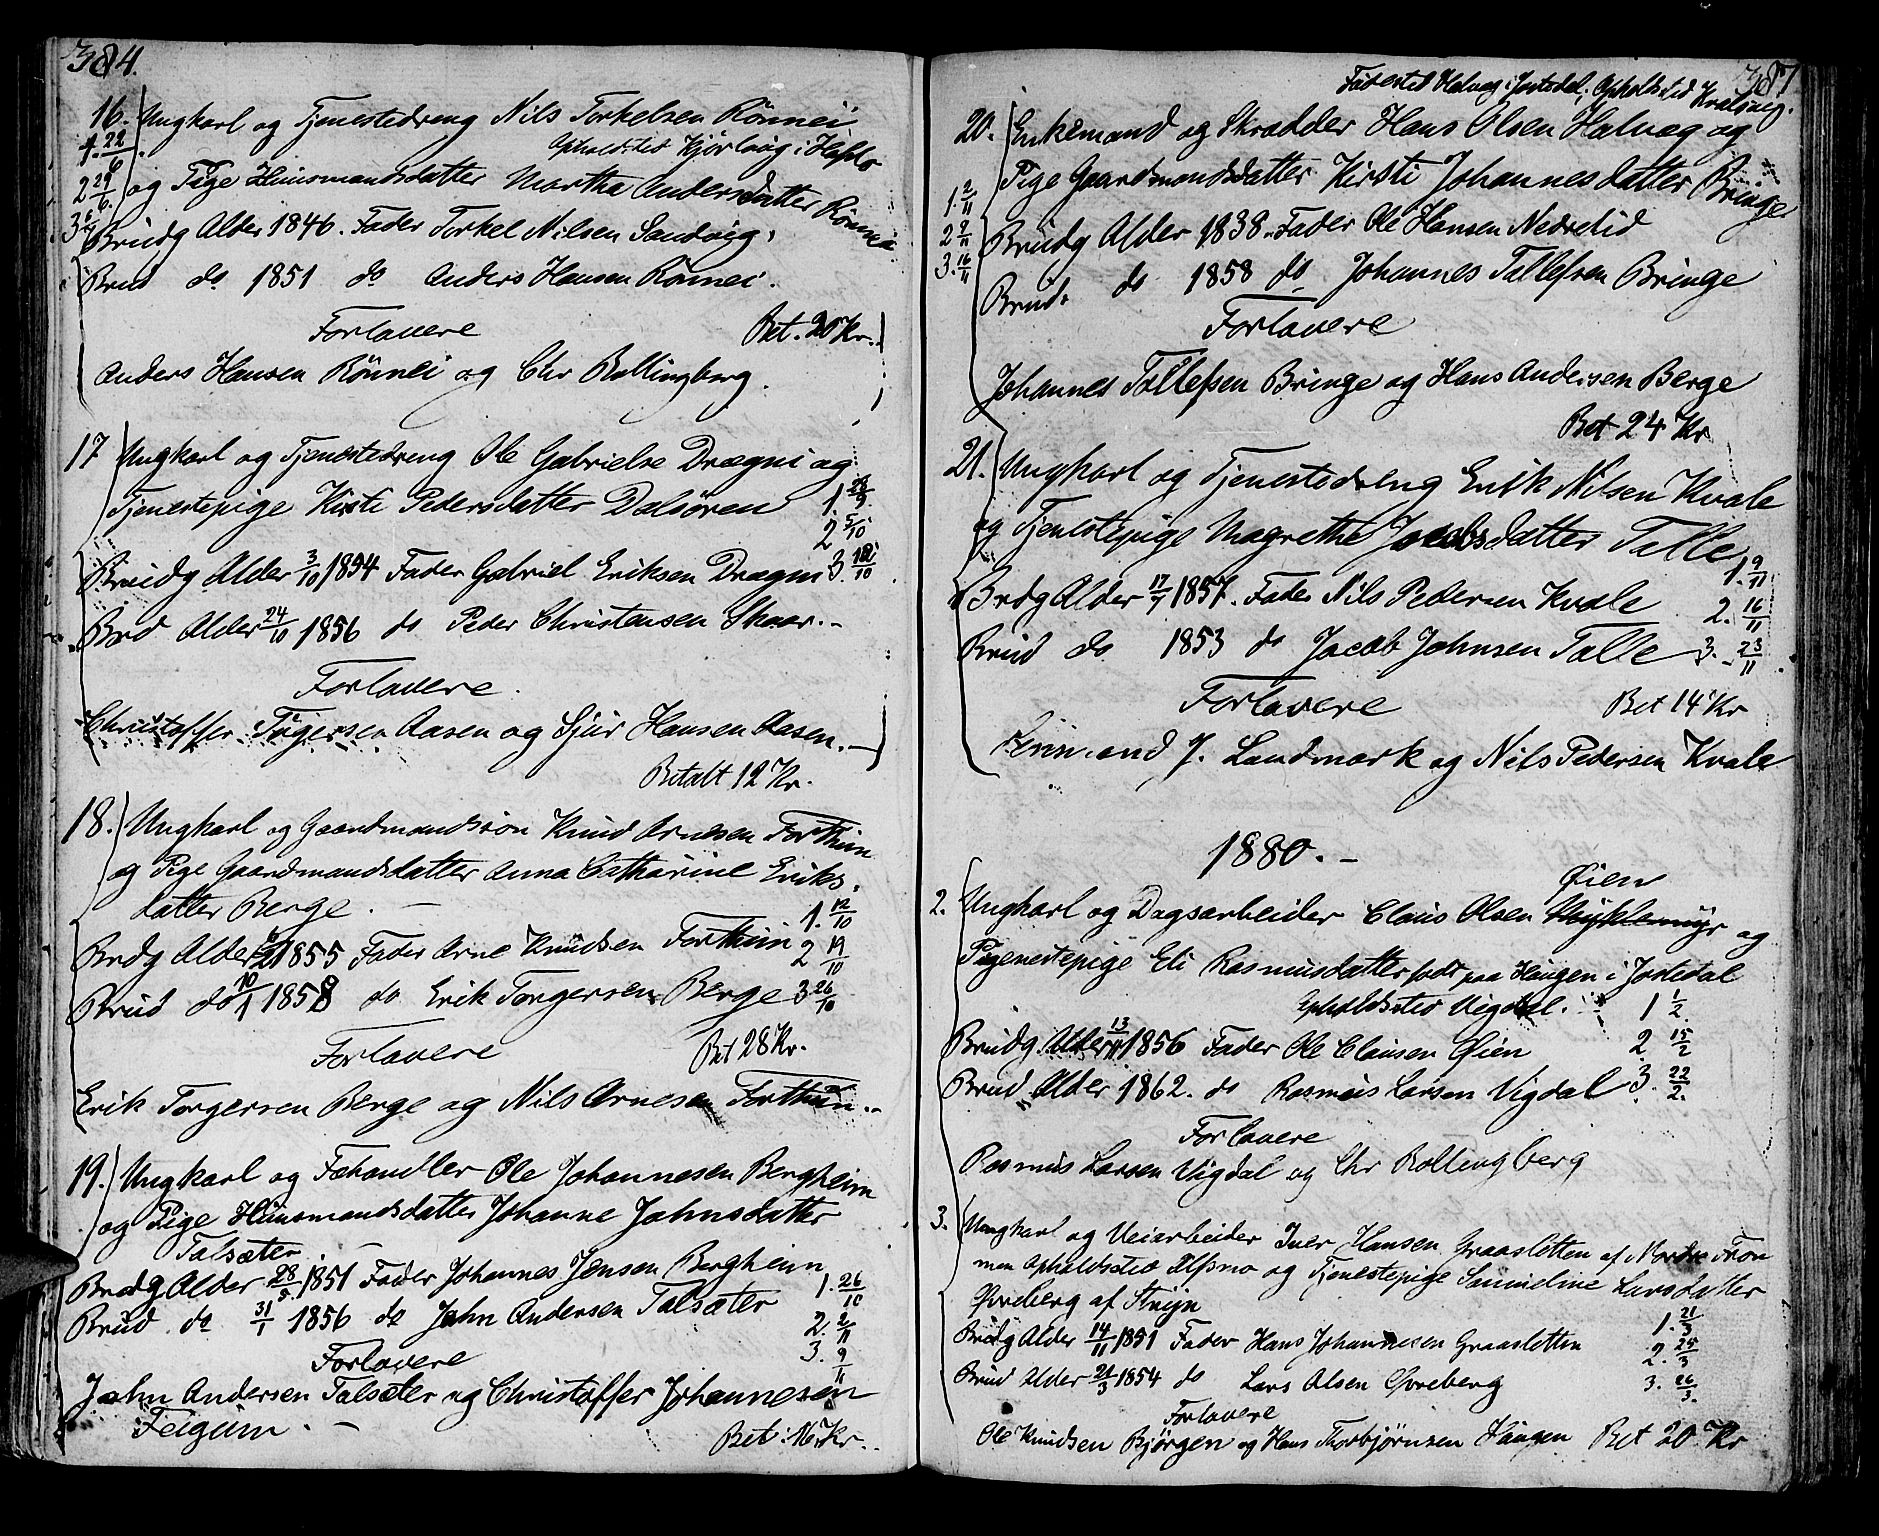 384.
16. Ungkarl og Tjenestedreng Nils Torkelsen Rönnei
Opholdssted Kjörlaug i Hafslo
1. 22/6.
og Pige Huusmandsdatter Martha Andersdatter Rönnei
2 29/6.
3 6/7
Brudg Alder 1846. Fader Torkel Nilsen Sandvig.
Brud do 1851 do Anders Hansen Rönnei.
Forlovere Bet. 20 Kr.
Anders Hansen Rönnei og Chr Bollingberg.
17 Ungkarl og Tjenestedreng Ole Gabrielse Drægni og
Tjenestepige Kirsti Pedersdatter Dalsören 1. 28/9.
2 5/10
Brudg Alder 3/10 1854 Fader Gabriel Eriksen Drægni 3. 12/10
Brud Alder 24/10 1856 do Peder Christensen Skaar.-
Forlovere.
Christoffer Tögersen Aasen og Sjur Hansen Aasen.-
Betalt 12 Kr.
18. Ungkarl og Gaardmandssön Knud Arnesen Forthun
og Pige Gaardmandsdatter Anna Catharine Eriks.
datter Berge. - 1. 12/10
Brdg Alder 1855 Fader Arne Knudsen Forthun 2 19/10
Brud do 10/1 1858 do Erik Torgersen Berge 3 26/10
Forlovere Bet 28 Kr.
Erik Torgersen Berge og Nils Arnesen Forthun.-
19. Ungkarl og Fæhandler Ole Johannesen Bergheim
og Pige Huusmandsdatter Johanne Jahnsdatter
Talsæter -
Brudg Alder 28/5. 1851 Fader Johannes Jensen Bergheim 1. 26/10
Brud do 31/1 1856 do Jahn Andersen Talsæter 2. 2/11
Forlovere 3. 9/11
Jahn Andersen Talsæter og Christoffer Johannesen
Feigum. - Bet: 16 Kr.
387
Födested Halvag i Jostedal; Opholdssted Kvalsvig.
20. Enkemand og Skrædder Hans Olsen Halvæg og
Pige Gaardmandsdatter Kirsti Johannesdatter Bringe
1. 2/11
2 9/11
3. 16/11
Brudg Alder 1838. Fader Ole Hansen Nedrelid
Brud. do 1858 do Johannes Tollefsen Bringe
Forlovere
Johannes Tollefsen Bringe og Hans Andersen Berge
Bet 24 Kr
21. Ungkarl og Tjenestedreng Erik Nilsen Kvale
og Tjenestepige Magrethe Jacobsdatter Talle
1. 9/11
Brdg Alder 17/7 1857. Fader Nils Pedersen Kvale 2. 16/11
Brud do 1853 do Jacob Johnsen Talle 3. 23/11
Forlovere Bet 14 Kr
J. Landmark og Nils Pedersen Kvale
1880.-
Øien
2. Ungkarl og Dagsarbeider Claus Olsen og
Tjenestepige Eli Rasmusdatter fodt paa Haugen i Jostedal
Opholdssted Vigdal. 1 1/2.
Brudg. Alder 13/11 1856 Fader Ole Clausen Øien 2 15/2
Brud Alder 1862. do Rasmus Larsen Vigdal 3. 22/2.
Forlovere
Rasmus Larsen Vigdal og Chr Bollingberg
3. Ungkarl og Veiarbeider Iver Hansen Graasletten af Nordre Tron
men Opholdssted Elfsmo og Tjenestepige Samueline Larsdatter
Øvreberg af Stryn
Brudg Alder 14/11 1851 Fader Hans Johannesen Graasletten 1. 21/3
2. 25/3
Brud Alder 21/3 1854 do Lars Olsen Øvreberg 3. 26/3.
Forlovere
Ole Knudsen Bjørgen og Hans Thorbjørnsen Haugen Bet 20 Kr